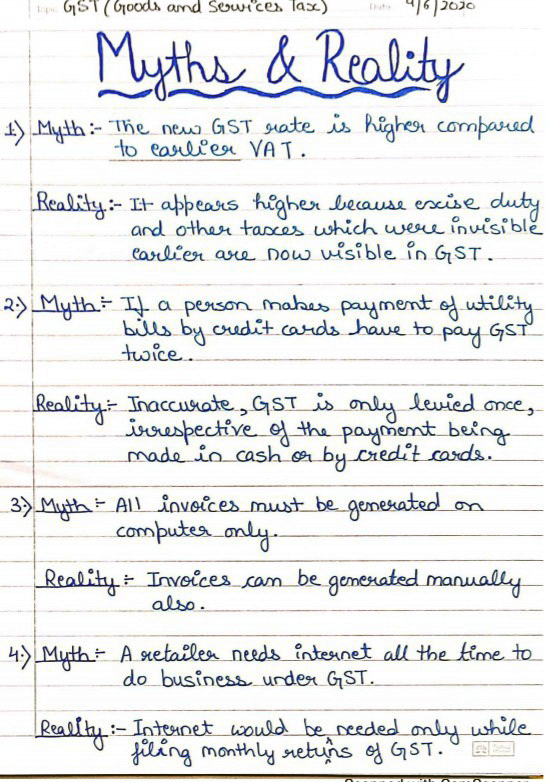 Topic GST (Goods and Services Tax) Date 4/6/2020
Myths & Reality
1) Myth:- The new GST rate is higher compared
to earlier VAT.
Reality:- It appears higher because excise duty
and other taxes which were invisible
earlier are now visible in GST.
2.) Myth:- If a person makes payment of utility
bills by credit cards have to pay GST
twice.
Reality:- Inaccurate, GST is only levied once,
irrespective of the payment being
made in cash or by credit cards.
3.) Myth:- All invoices must be generated on
computer only.
Reality:- Invoices can be generated manually
also.
4.) Myth:- A retailer needs internet all the time to
do business under GST.
Reality:- Internet would be needed only while
filing monthly returns of GST.
Scanned with CamScanner